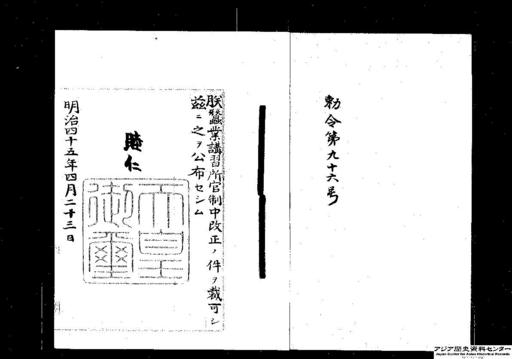 勅令第九十六号
朕蠶業講習所官制中改正ノ件ヲ裁可シ
茲ニ之ヲ公布セシム
睦仁
天皇御璽
明治四十五年四月二十三日
アジア歴史資料センター
Japan Center for Asian Historical Records